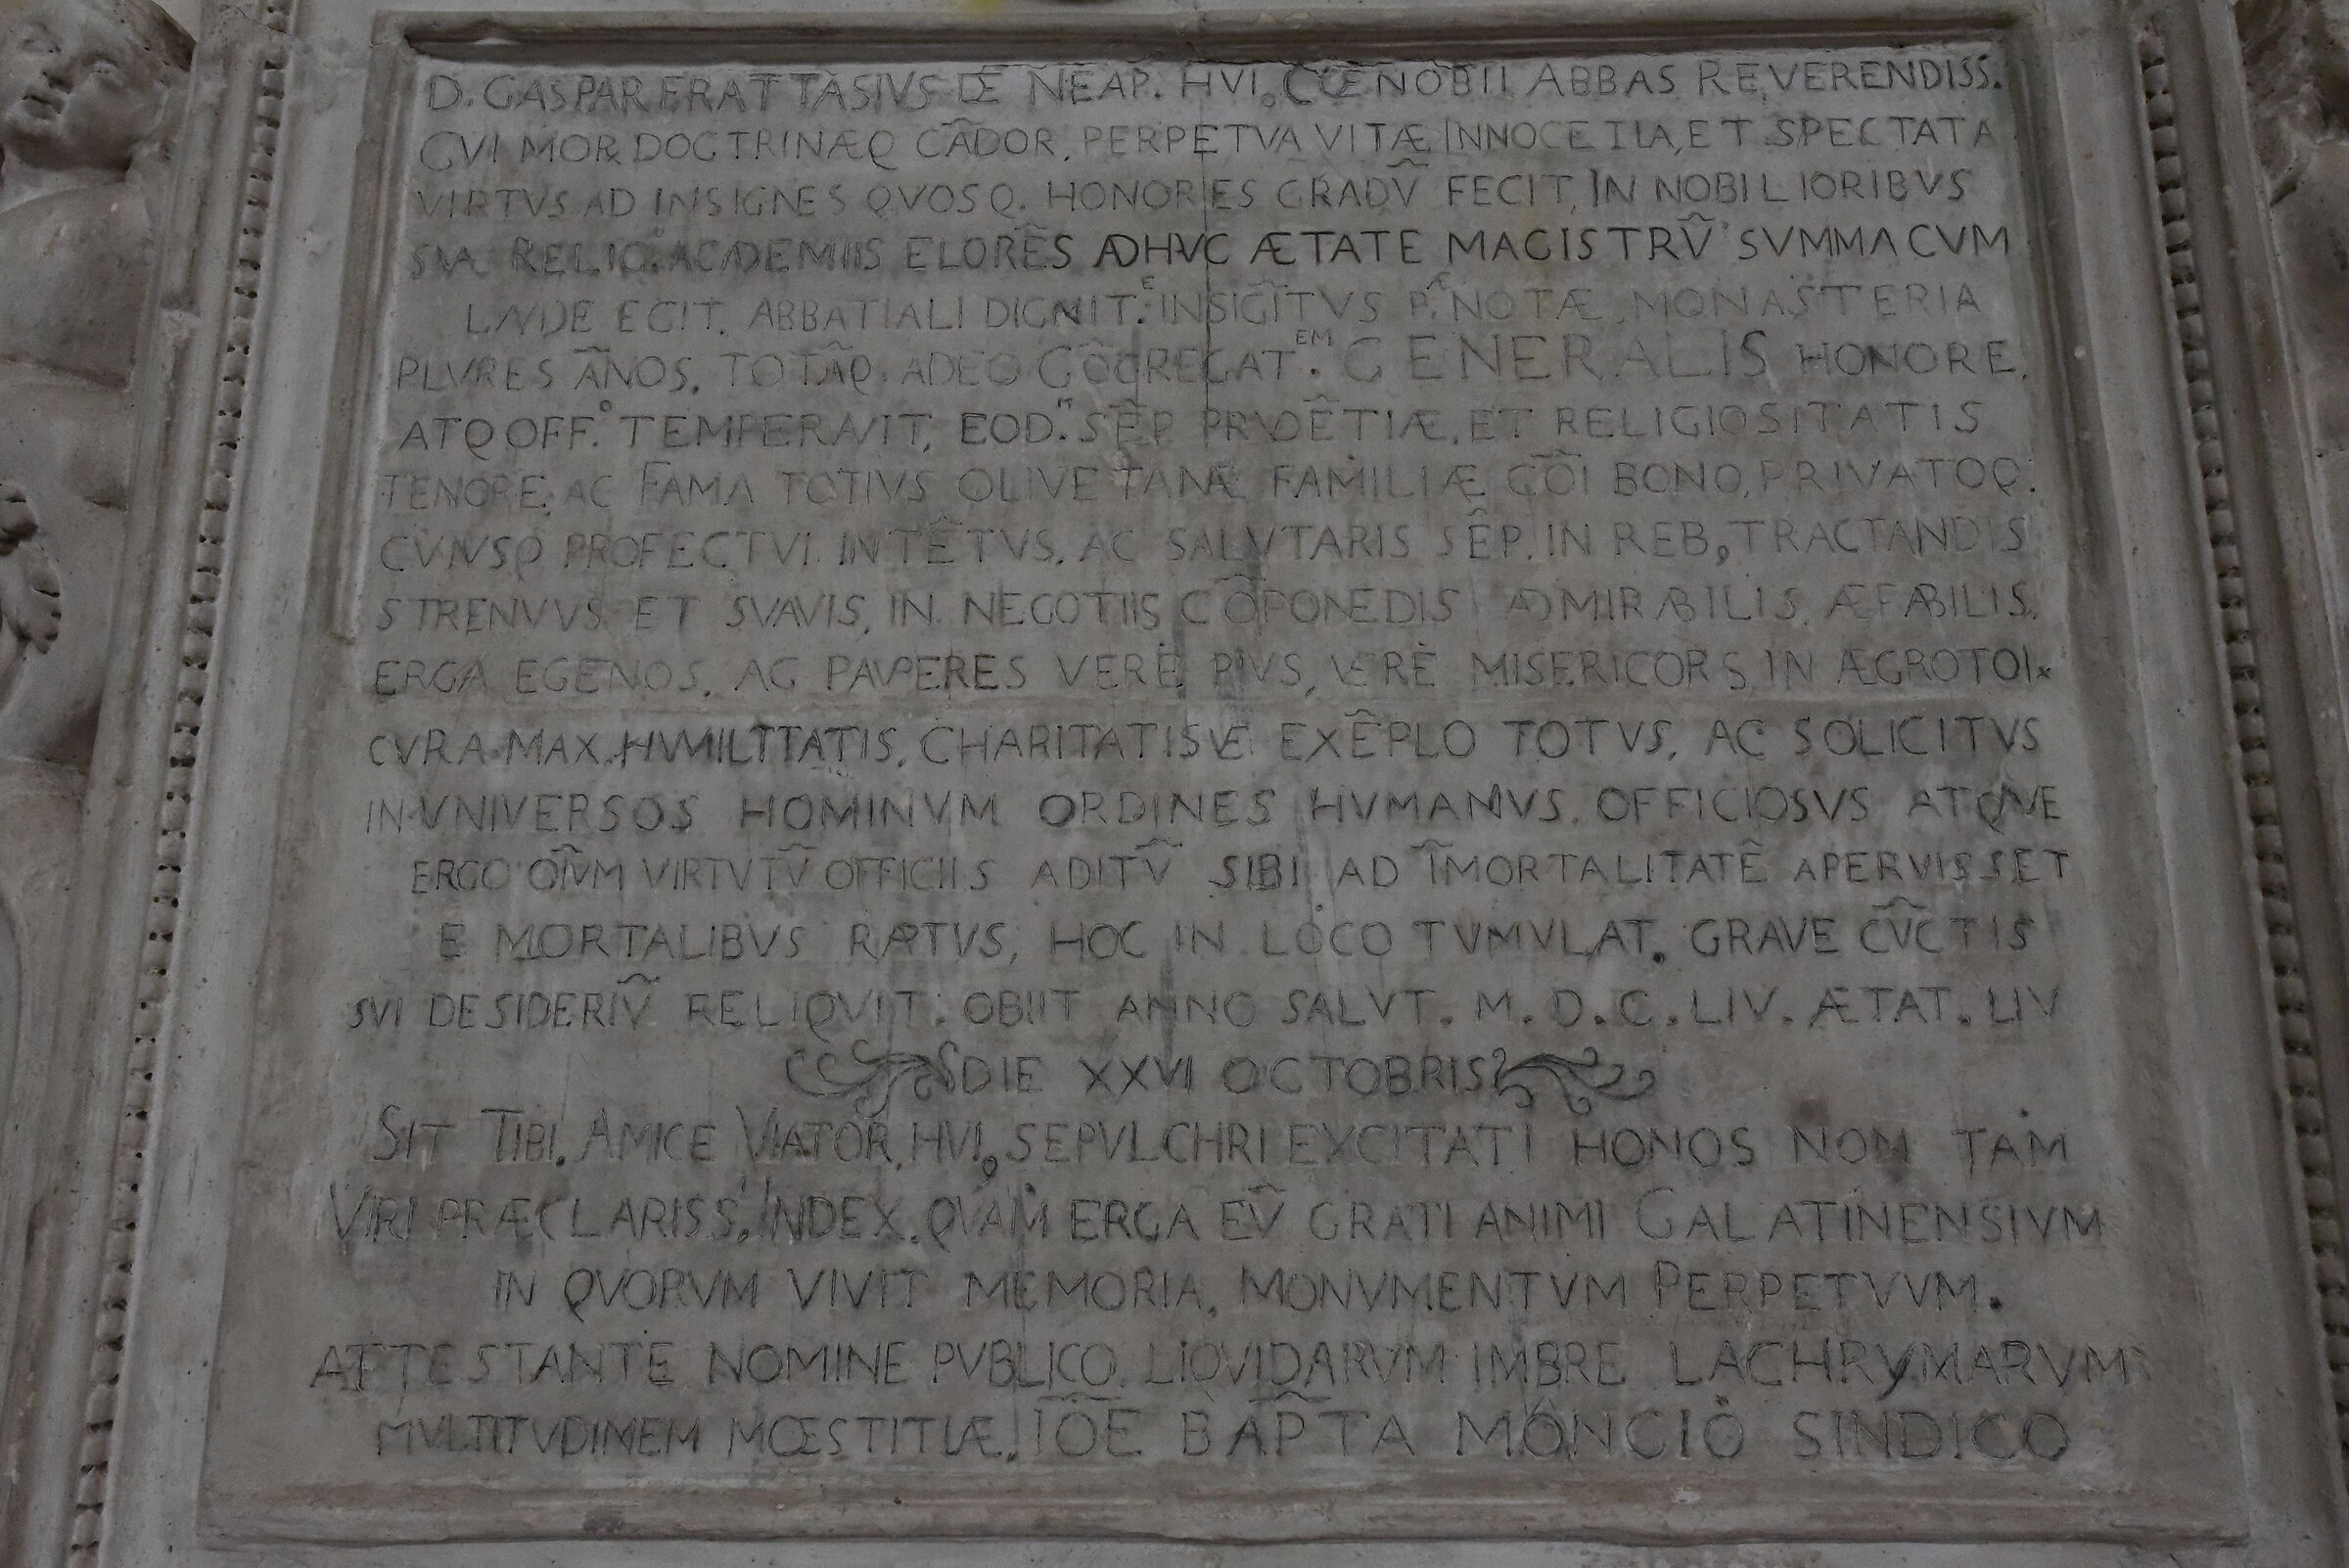 D. GASPAR FRATTASIVS DE NEAP. HVI9 CŒNOBII ABBAS REVERENDISS.
CVI MOR DOCTRINÆQ CÃDOR, PERPETVA VITÆ INNOCE TIA, ET SPECTATA
VIRTVS AD INSIGNES QVOSQ. HONORES GRADṼ FECIT, IN NOBILIORIBVS
SVÆ RELIG. ACADEMIIS FLORẼS ADHVC ÆTATE MAGISTRṼ SVMMA CVM
LAVDE EGIT. ABBATIALI DIGNIT.E INSIGĨTVS P.Æ NOTÆ MONASTERIA
PLVRES ÃNOS. TOTÃQ. ADEO CÕGREGAT.EM GENERALIS HONORE,
ATQ OFF.O TEMPERAVIT, EOD.M SẼP PRVDẼTIÆ, ET RELIGIOSITATIS
TENORE, AC FAMA TOTIVS OLIVETANÆ FAMILIÆ CÕI BONO, PRIVATOQ:
CVIVSQ PROFECTVI INTẼTVS, AC SALVTARIS SẼP. IN REB9 TRACTANDIS
STRENVVS ET SVAVIS, IN NEGOTIIS CÕPONEDIS ADMIRABILIS, ÆFABILIS,
ERGA EGENOS, AC PAVPERES VERE PIVS, VERE MISERICORS, IN ÆGROTOI
CVRA MAX. HVMILITATIS, CHARITATISVE EXẼPLO TOTVS, AC SOLICITVS
IN VNIVERSOS HOMINVM ORDINES HVMANVS, OFFICIOSVS ATQVE
ERGO OĨVM VIRTVTṼ OFFICIIS ADITṼ SIBI AD ĨMORTALITATẼ APERVISSET
E MORTALIBVS RAPTVS, HOC IN LOCO TVMVLAT. GRAVE CṼCTIS
SVI DESIDERIṼ RELIQVIT. OBIIT ANNO SALVT. M. D. C. LIV. ÆTAT. LIV
DIE XXVI OCTOBRIS
SIT TIBI, AMICE VIATOR, HVI9 SEPVLCHRI EXCITATI HONOS NON TAM
VIRI PRÆCLARISS. INDEX, QVAM ERGA EṼ GRATI ANIMI GALATINENSIVM
IN QVORVM VIVIT MEMORIA, MONVMENTVM PERPETVVM.
ATTESTANTE NOMINE PVBLICO LIQVIDARVM IMBRE LACHRYMARVM
MVLTITVDINEM MŒSTITIÆ, IÕE BAP̃TA MONGIO SINDICO